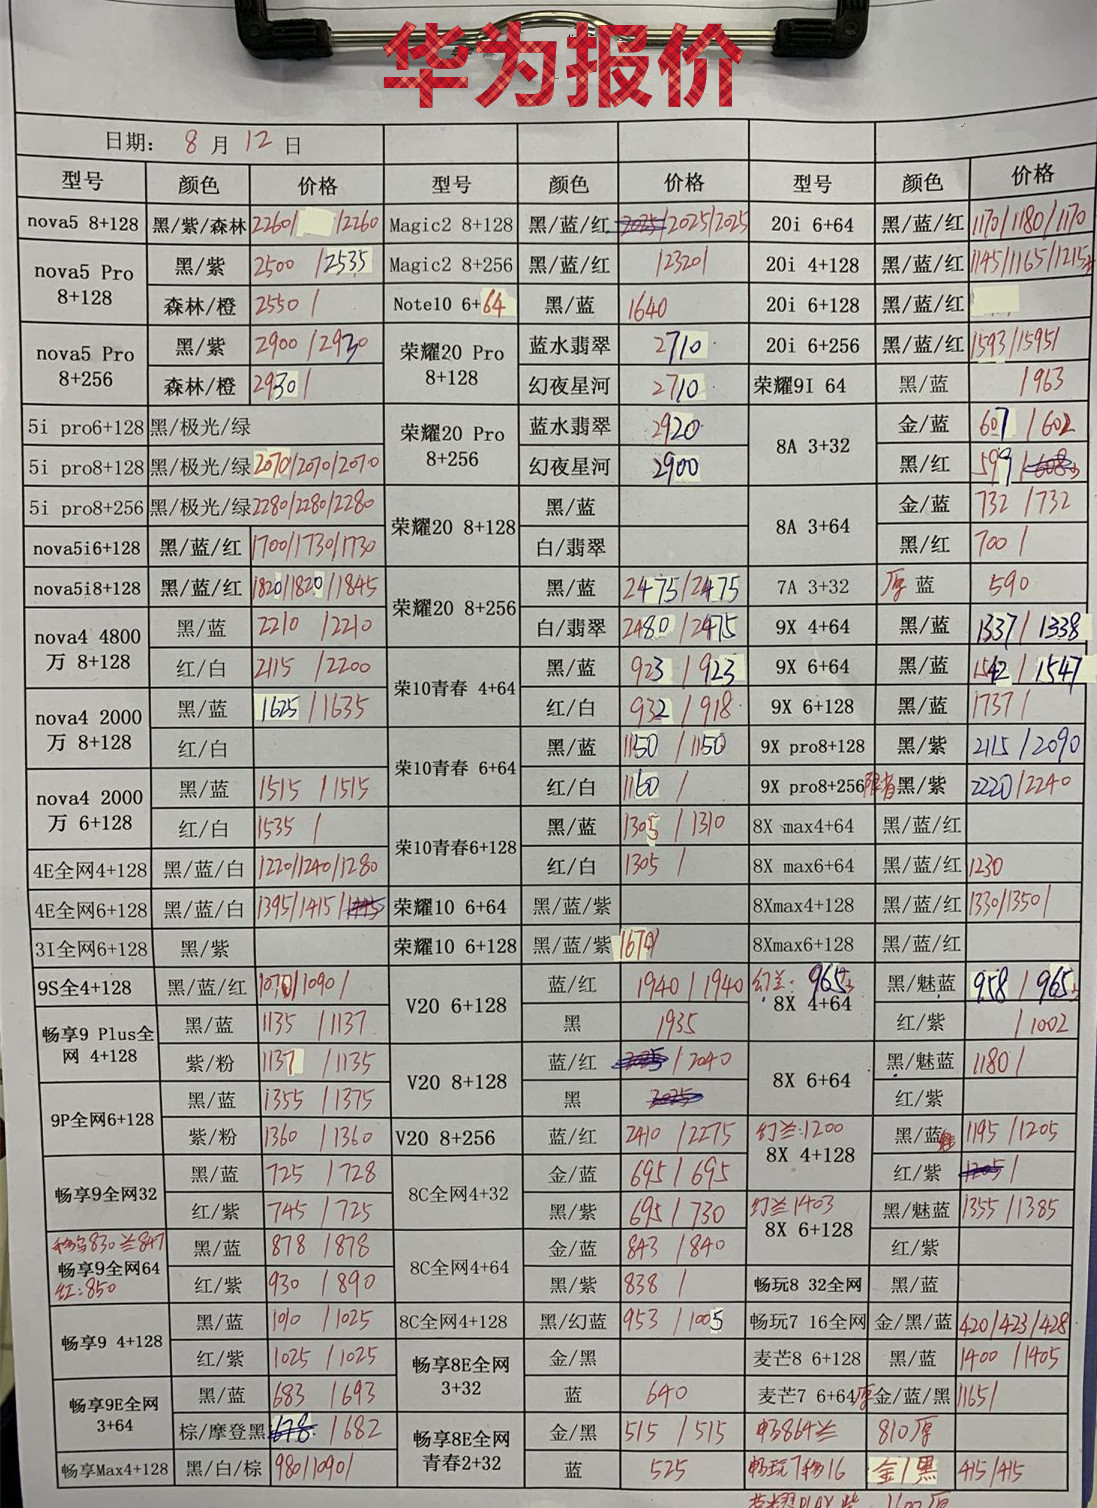 华为报价
日期: 8 月 12 日
型号 颜色 价格 型号 颜色 价格 型号 颜色 价格
nova5 8+128 黑/紫/森林 2260/ /2260 Magic2 8+128 黑/蓝/红 2025/2025/2025 20i 6+64 黑/蓝/红 1170/1180/1170
nova5 Pro 8+128 黑/紫 2500 /2535 Magic2 8+256 黑/蓝/红 /2320/ 20i 4+128 黑/蓝/红 1145/1165/1215
森林/橙 2550 / Note10 6+64 黑/蓝 1640 20i 6+128 黑/蓝/红
nova5 Pro 8+256 黑/紫 2900 /2930 荣耀20 Pro 8+128 蓝水翡翠 2710 20i 6+256 黑/蓝/红 1593/1595/
森林/橙 2930 / 幻夜星河 2710 荣耀9I 64 黑/蓝 /963
5i pro6+128 黑/极光/绿 荣耀20 Pro 8+256 蓝水翡翠 2920 8A 3+32 金/蓝 607 /602
5i pro8+128 黑/极光/绿 2070/2070/2070 幻夜星河 2900 黑/红 599 /608
5i pro8+256 黑/极光/绿 2280/2280/2280 荣耀20 8+128 黑/蓝 8A 3+64 金/蓝 732 /732
nova5i6+128 黑/蓝/红 1700/1730/1730 白/翡翠 黑/红 700 /
nova5i8+128 黑/蓝/红 1820/1820/1845 荣耀20 8+256 黑/蓝 2475/2475 7A 3+32 厚 蓝 590
nova4 4800万 8+128 黑/蓝 2210 /2210 白/翡翠 2480 /2475 9X 4+64 黑/蓝 1337/ 1338
红/白 2115 /2200 荣10青春 4+64 黑/蓝 923 /923 9X 6+64 黑/蓝 1542 /1547
nova4 2000万 8+128 黑/蓝 1625 /1635 红/白 932 /918 9X 6+128 黑/蓝 1737/
红/白 荣10青春 6+64 黑/蓝 1150 /1150 9X pro8+128 黑/紫 2115 /2090
nova4 2000万 6+128 黑/蓝 1515 /1515 红/白 1160 / 9X pro8+256 黑/紫 2220/2240
红/白 1535 / 荣10青春6+128 黑/蓝 1305 /1310 8X max4+64 黑/蓝/红
4E全网4+128 黑/蓝/白 1220/1240/1280 红/白 1305 / 8X max6+64 黑/蓝/红 1230
4E全网6+128 黑/蓝/白 1395/1415/ 荣耀10 6+64 黑/蓝/紫 8Xmax4+128 黑/蓝/红 1330/1350/
3I全网6+128 黑/紫 荣耀10 6+128 黑/蓝/紫 1670/ 8Xmax6+128 黑/蓝/红
9S全4+128 黑/蓝/红 1070/1090/ V20 6+128 蓝/红 1940 /1940 幻兰: 965 8X 4+64 黑/魅蓝 958 /965
畅享9 Plus全网 4+128 黑/蓝 1135 /1137 黑 1935 红/紫 /1002
紫/粉 1137 /1135 V20 8+128 蓝/红 /2040 8X 6+64 黑/魅蓝 1180/
9P全网6+128 黑/蓝 1355 /1375 黑 2025 红/紫
紫/粉 1360 /1360 V20 8+256 蓝/红 2410 /2275 幻兰:1200 8X 4+128 黑/蓝 1195 /1205
畅享9全网32 黑/蓝 725 /728 8C全网4+32 金/蓝 695 /695 红/紫 1205 /
红/紫 745 /725 黑/紫 695 /730 幻兰1403 8X 6+128 黑/魅蓝 1355 /1385
830 兰847 畅享9全网64 红:850 黑/蓝 878 /878 8C全网4+64 金/蓝 843 /840 红/紫
红/紫 930 /890 黑/紫 838 / 畅玩8 32全网 黑/蓝
畅享9 4+128 黑/蓝 1010 /1025 8C全网4+128 黑/幻蓝 953 /1005 畅玩7 16全网 金/黑/蓝 420/423/428
红/紫 1025 /1025 畅享8E全网 3+32 金/黑 麦芒8 6+128 黑/蓝 1400 /1405
畅享9E全网 3+64 黑/蓝 683 /693 蓝 640 麦芒7 6+64 厚 金/蓝/黑 1165/
棕/摩登黑 678 /682 畅享8E全网青春2+32 金/黑 515 /515 畅864兰 810厚
畅享Max4+128 黑/白/棕 980/1090/ 蓝 525 畅玩7移16 金/黑 415/415